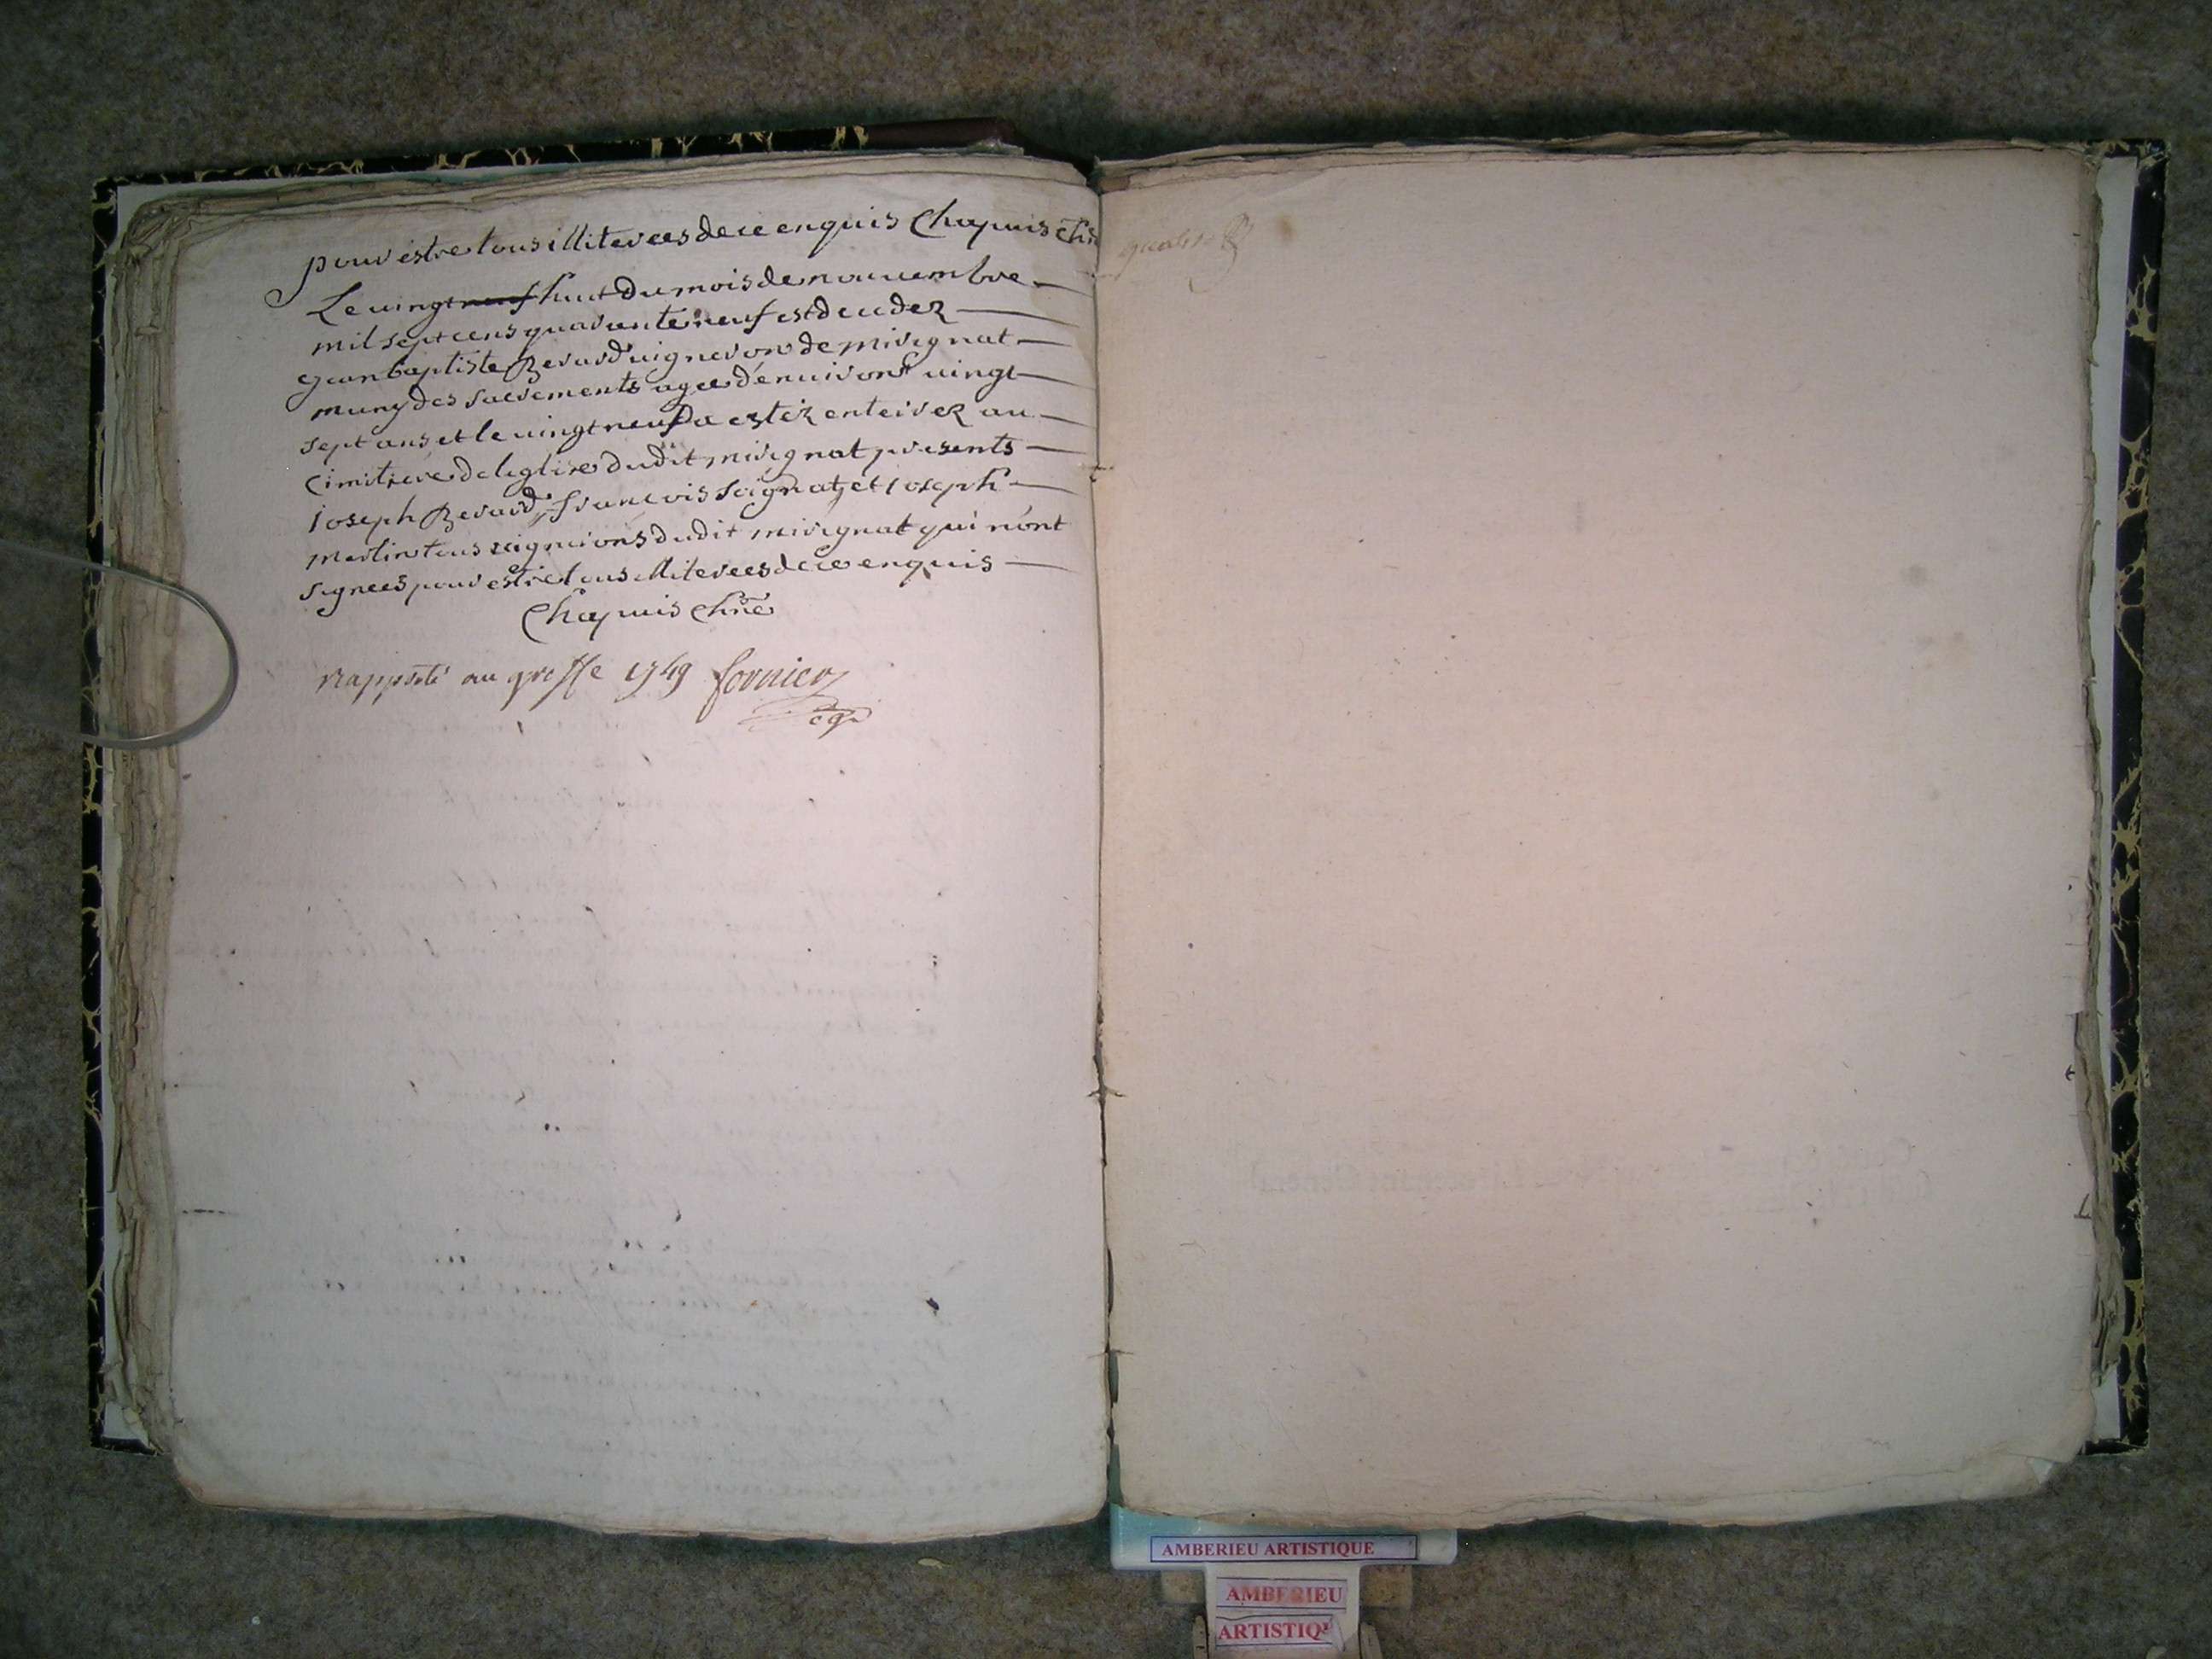 pour estre tous illiterees de ce enquis Chapuis
Le uingt neuf huit du mois de nouuembre
mil sept cens quarante neuf est decedez
jean baptiste Berard uigneron de mirignat
muny des sacrements agee d'enuiront uingt
sept ans et le uingt neuf a estez enterrez au
cimitiere de leglise dudit mirignat presents
ioseph Berard, francois Soignat, et ioseph
merlin tous uignerons dudit mirignat qui n'ont
signees pour estre tous illiterees de ce enquis
Chapuis Chne
rapporté au greffe 1749 fornier
AMBERIEU ARTISTIQUE
AMBERIEU
ARTISTIQ